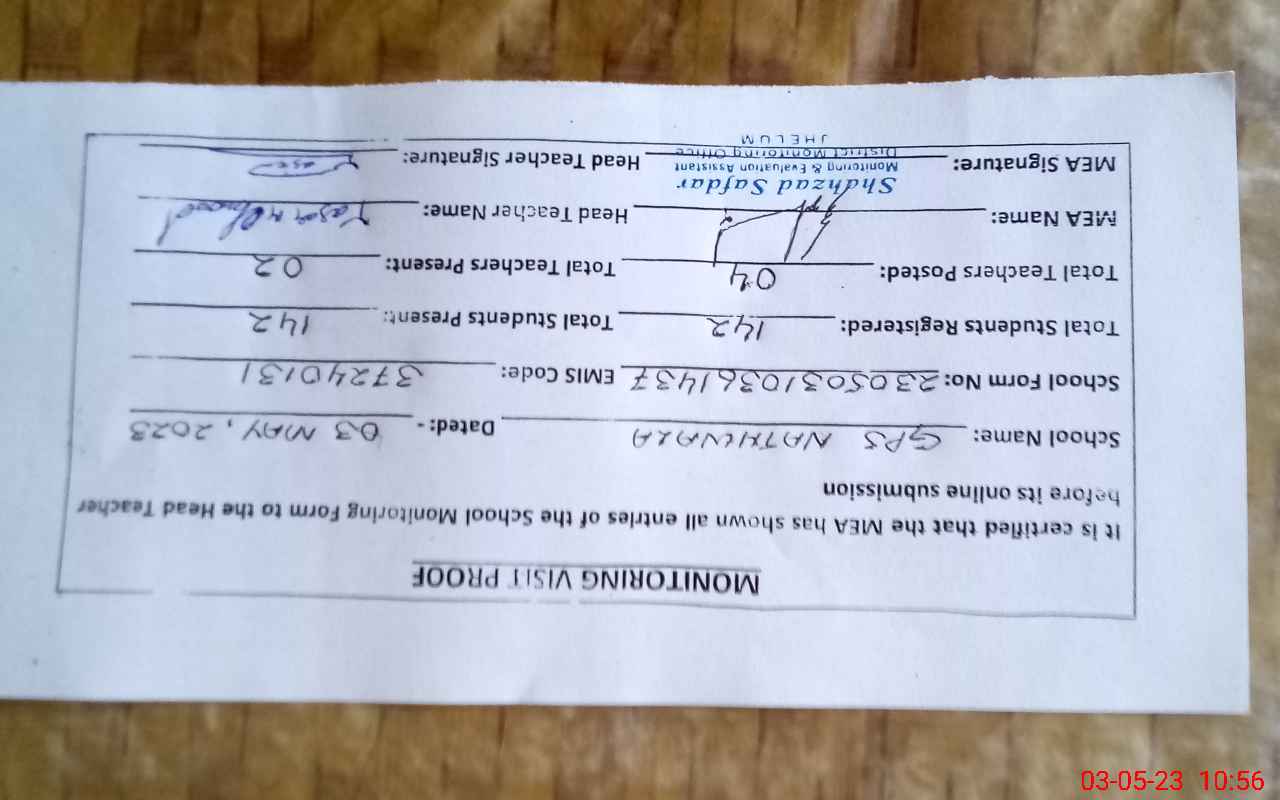 MONITORING VISIT PROOF
It is certified that the MEA has shown all entries of the School Monitoring Form to the Head Teacher
before its online submission
School Name: GPS NATHWALA Dated:- 03 MAY, 2023
School Form No: 230503103614137 EMIS Code: 37240131
Total Students Registered: 142 Total Students Present: 142
Total Teachers Posted: 04 Total Teachers Present: 02
MEA Name: Head Teacher Name: Yasar Mehmood
Shahzad Safdar
Monitoring & Evaluation Assistant
MEA Signature: Head Teacher Signature:
District Monitoring Office
JHELUM
03-05-23 10:56